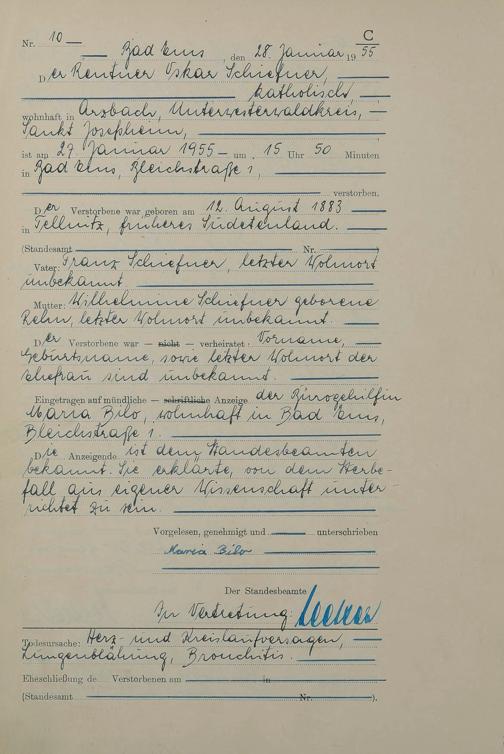 C
Nr. 10
Bad Ems, den 28. Januar 1955
Der Rentner Oskar Schiefner,
katholisch,
wohnhaft in Arzbach, Unterwesterwaldkreis,
Sankt Josefheim,
ist am 27. Januar 1955 um 15 Uhr 50 Minuten
in Bad Ems, Bleichstraße 1,
verstorben.
Der Verstorbene war geboren am 12. August 1883
in Tellnitz, früheres Sudetenland.
(Standesamt Nr. )
Vater: Franz Schiefner, letzter Wohnort
unbekannt
Mutter: Wilhelmine Schiefner geborene
Rehn, letzter Wohnort unbekannt.
Der Verstorbene war — nicht — verheiratet. Vorname,
Geburtsname, sowie letzter Wohnort der
Ehefrau sind unbekannt.
Eingetragen auf mündliche — schriftliche Anzeige der Bürogehilfin
Maria Bilo, wohnhaft in Bad Ems,
Bleichstraße 1.
Die Anzeigende ist dem Standesbeamten
bekannt. Sie erklärte, von dem Sterbe-
fall aus eigener Wissenschaft unter-
richtet zu sein.
Vorgelesen, genehmigt und unterschrieben
Maria Bilo
Der Standesbeamte
In Vertretung:
Todesursache: Herz- und Kreislaufversagen,
Lungenblähung, Bronchitis.
Eheschließung de Verstorbenen am in
(Standesamt Nr. ).